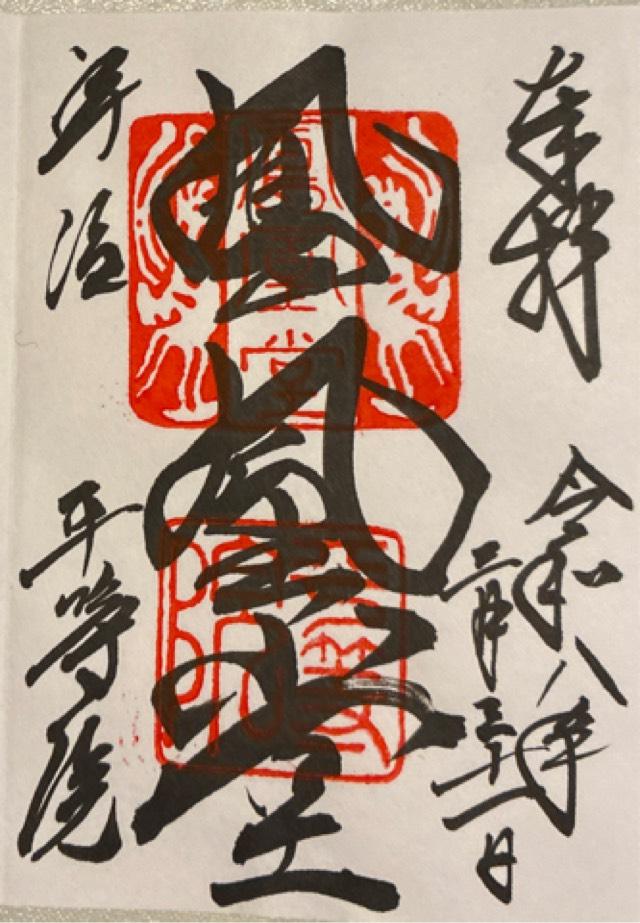 奉拝
令和八年
三月三十一日
鳳凰堂
宇治
平等院
鳳凰堂